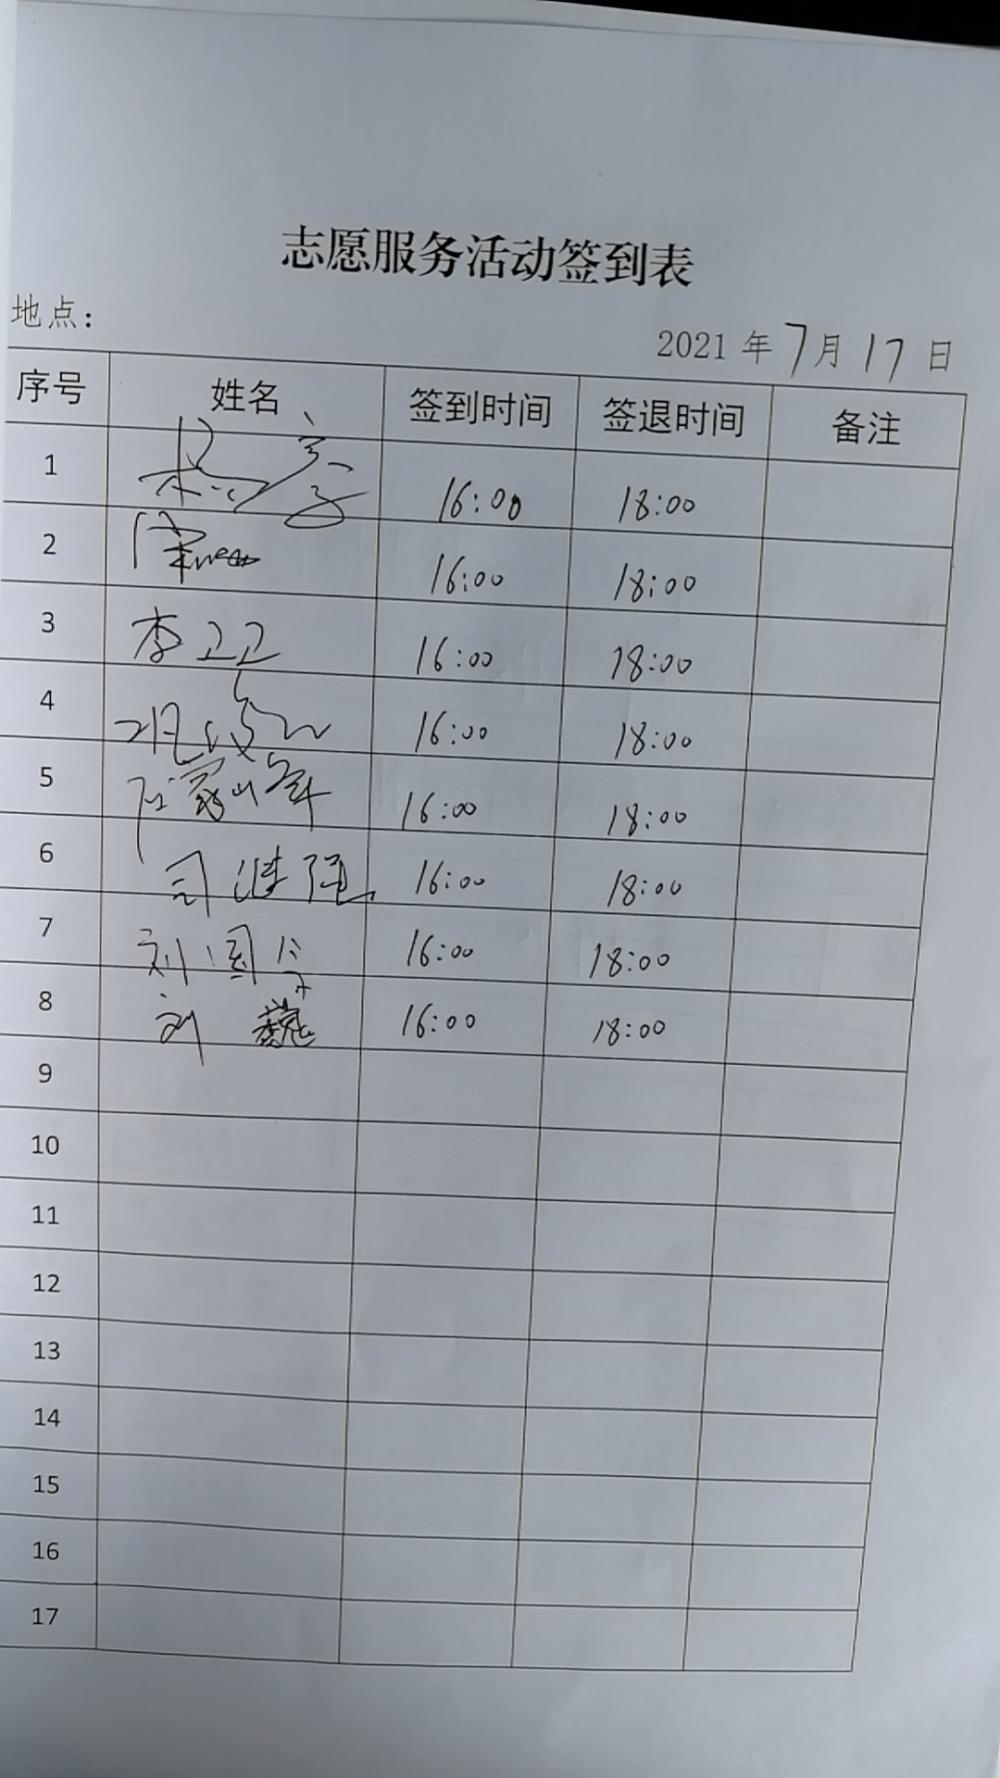 志愿服务活动签到表
地点:
2021 年 7 月 17 日
序号 姓名 签到时间 签退时间 备注
1 16:00 18:00
2 16:00 18:00
3 李卫卫 16:00 18:00
4 16:00 18:00
5 16:00 18:00
6 司继强 16:00 18:00
7 刘国 16:00 18:00
8 刘巍 16:00 18:00
9
10
11
12
13
14
15
16
17